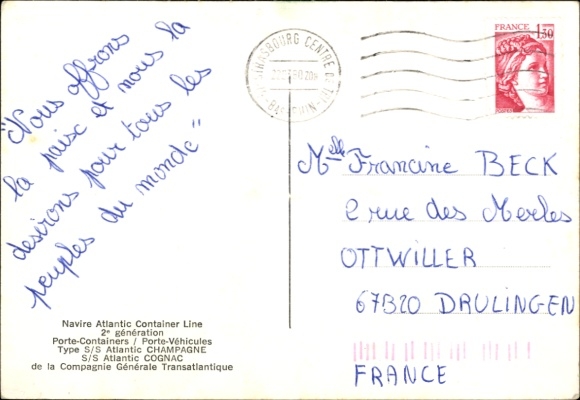 "Nous offrons
la paix et nous la
desirons pour tous les
peuples du monde"
Navire Atlantic Container Line
2e génération
Porte-Containers / Porte-Véhicules
Type S/S Atlantic CHAMPAGNE
S/S Atlantic COGNAC
de la Compagnie Générale Transatlantique
STRASBOURG CENTRE DE TRI
BAS-RHIN
FRANCE
1,30
Melle Francine BECK
2 rue des Merles
OTTWILLER
67320 DRULINGEN
FRANCE